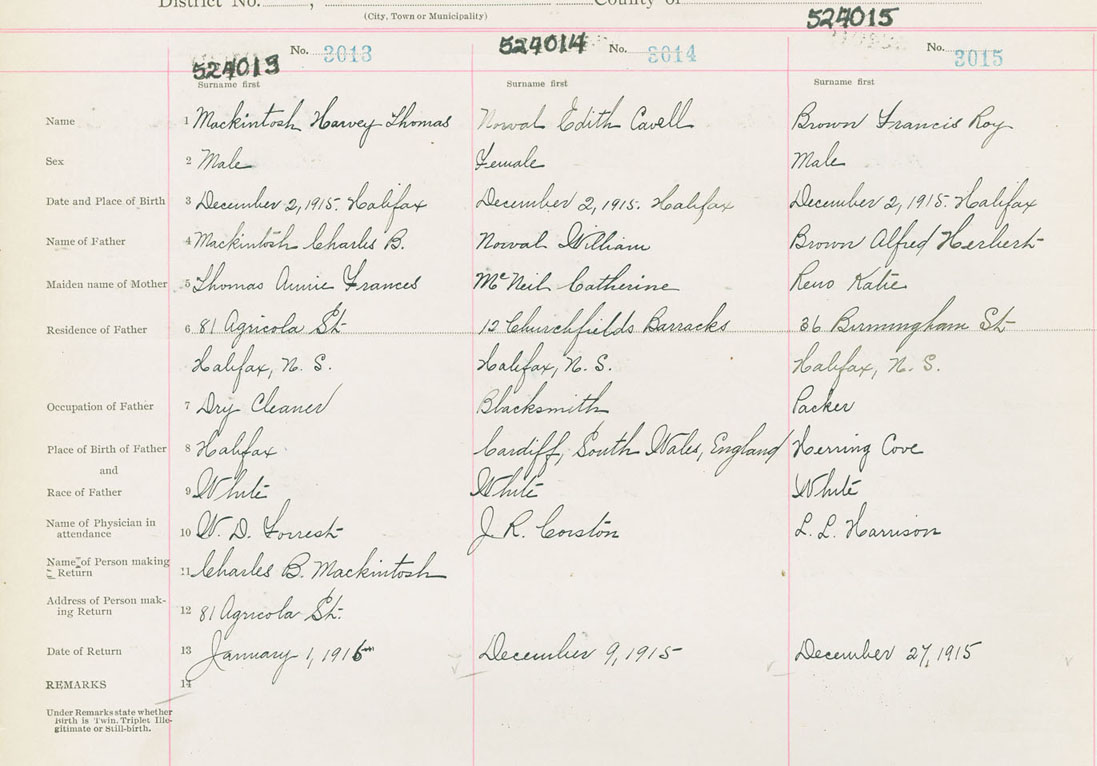 District No. , County of
(City, Town or Municipality)
524013 No. 3013 524014 No. 3014 524015 No. 3015
Surname first Surname first Surname first
Name 1 Mackintosh Harvey Thomas Norval Edith Cavell Brown Francis Roy
Sex 2 Male Female Male
Date and Place of Birth 3 December 2, 1915. Halifax December 2, 1915. Halifax December 2, 1915. Halifax
Name of Father 4 Mackintosh Charles B. Norval William Brown Alfred Herbert
Maiden name of Mother 5 Thomas Annie Frances McNeil Catherine Reno Katie
Residence of Father 6 81 Agricola St. 12 Churchfields Barracks 36 Birmingham St.
Halifax, N. S. Halifax, N. S. Halifax, N. S.
Occupation of Father 7 Dry Cleaner Blacksmith Packer
Place of Birth of Father 8 Halifax Cardiff, South Wales, England Herring Cove
and
Race of Father 9 White White White
Name of Physician in
attendance 10 W. D. Forrest J. R. Corston L. L. Harrison
Name of Person making
Return 11 Charles B. Mackintosh
Address of Person mak-
ing Return 12 81 Agricola St.
Date of Return 13 January 1, 1916 December 9, 1915 December 27, 1915
REMARKS 14
Under Remarks state whether
Birth is Twin. Triplet Ille-
gitimate or Still-birth.